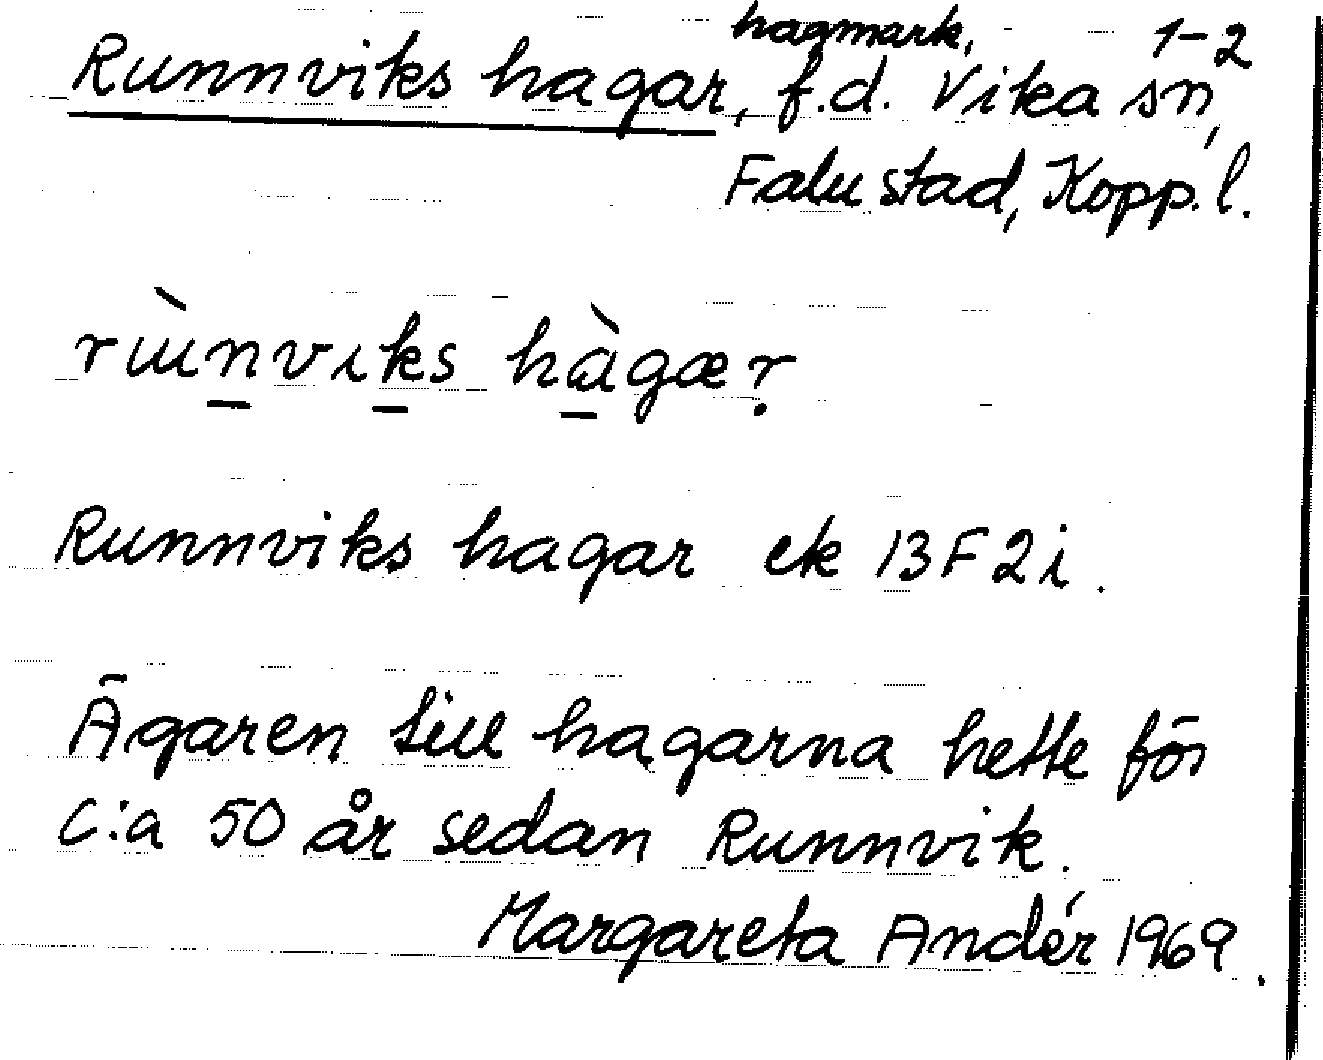 hagmark, 1-2
Runnviks hagar, f.d. Vika sn,
Falu stad, Kopp. l.
rɯ̀n̲vik̲s hà̲gæṛ
Runnviks hagar ek 13F2i.
Ägaren till hagarna hette för
c:a 50 år sedan Runnvik.
Margareta Andér 1969.